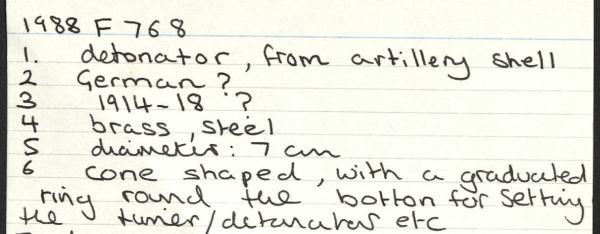 1988 F 768
1. detonator, from artillery shell
2 German?
3 1914-18?
4 brass, steel
5 diameter: 7 cm
6 cone shaped, with a graduated
ring round the botton for setting
the timer/detonator etc